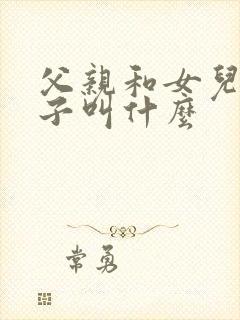 父親和女兒
子叫什麼
常勇